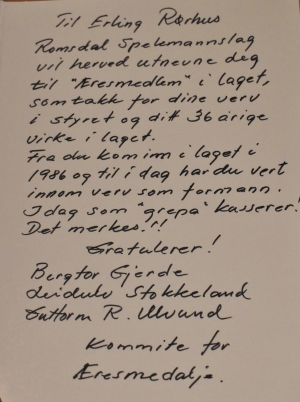 Til Erling Rørhus
Romsdal Spelemannslag
vil herved utnevne deg
til "Æresmedlem" i laget,
som takk for dine verv
i styret og ditt 36 årige
virke i laget.
Fra du kom inn i laget i
1986 og til i dag har du vert
innom verv som formann.
I dag som "grepa" kasserer!
Det merkes.!!
Gratulerer!
Bergtor Gjerde
Leidulv Stokkeland
Guttorm R. Ulvund
Kommite for
Æresmedalje.